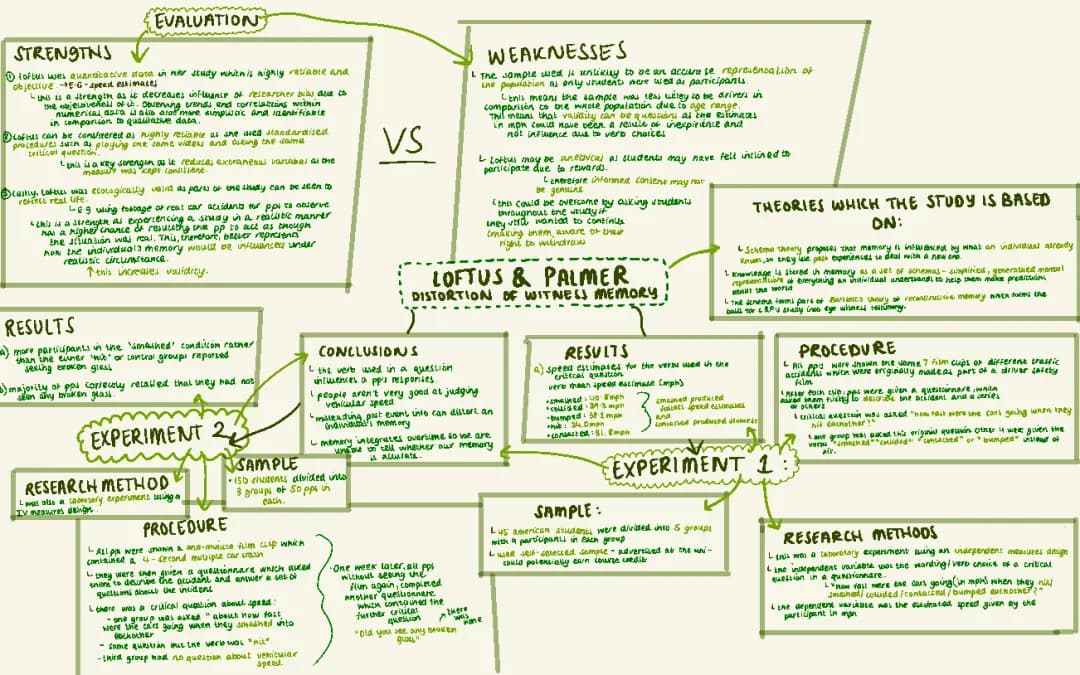 EVALUATION
STRENGTHS
① Loftus uses quantitative data in her study which is highly reliable and
objective → E-G - speed estimates
↳ this is a strength as it decreases influence of researcher bias due to
the objectiveness of it. Observing trends and correlations within
numerical data is also more simplistic and identifiable
in comparison to qualitative data.
② Loftus can be considered as highly reliable as she used standardised
procedures such as playing the same videos and asking the same
critical question.
↳ this is a key strength as it reduces extraneous variables as the
measure was kept consistent.
③ Lastly, Loftus was ecologically valid as parts of the study can be seen to
reflect real life.
↳ E-g using footage of real car accidents for pps to observe
↳ this is a strength as experiencing a study in a realistic manner
has a higher chance of resulting the pp to act as though
the situation was real. This, therefore, better represents
how the individual's memory would be influenced under
realistic circumstance.
↑ this increases validity.
VS
WEAKNESSES
↳ The sample used is unlikely to be an accurate representation of
the population as only students were used as participants.
↳ this means the sample was less likely to be drivers in
comparison to the whole population due to age range.
This means that validity can be questions as the estimates
in mph could have been a result of inexperience and
not influence due to verb choices
↳ Loftus may be unethical as students may have felt inclined to
participate due to rewards.
↳ therefore informed consent may not
be genuine
↳ this could be overcome by asking students
throughout the study if
they still wanted to continue
(making them aware of their
right to withdraw
THEORIES WHICH THE STUDY IS BASED
ON:
↳ Schema theory proposes that memory is influenced by what an individual already
knows, so they use past experiences to deal with a new one.
↳ Knowledge is stored in memory as a set of schemas - simplified, generalised mental
representations of everything an individual understands to help them make predictions
about the world
↳ The schema forms part of Bartlett's theory of reconstructive memory which forms the
basis for L&P'U study into eye witness testimony.
LOFTUS & PALMER
DISTORTION OF WITNESS MEMORY
RESULTS
a) more participants in the 'smashed' condition rather
than the either 'hit' or control groups reported
seeing broken glass
b) majority of pps correctly recalled that they had not
seen any broken glass.
CONCLUSIONS
↳ the verb used in a question
influences a pps responses.
↳ people aren't very good at judging
vehicular speed
↳ misleading post event info can distort an
individual's memory
↳ memory integrates overtime so we are
unable to tell whether our memory
is accurate.
RESULTS
a) speed estimates for the verbs used in the
critical question
verb mean speed estimate (mph)
- smashed: 40.8mph
- collided: 39.3mph
- bumped: 38.1mph
- hit: 34.0mph
- contacted: 31.8mph
smashed produced
fastest speed estimates
and
contacted produced slowest
PROCEDURE
↳ All pps were shown the same 7 film clips of different traffic
accidents which were originally made as part of a driver safety
film
↳ After each clip, pps were given a questionnaire which
asked them firstly to describe the accident and a series
of others
↳ critical question was asked "how fast were the cars going when they
hit eachother?"
↳ one group was asked this original question other 4 were given the
verbs "smashed" "collided" "contacted" or "bumped" instead of
hit.
EXPERIMENT 2
EXPERIMENT 1:
RESEARCH METHOD
↳ was also a laboratory experiment using a
IV measures design.
SAMPLE
• 150 students divided into
3 groups of 50 pps in
each.
SAMPLE:
↳ 45 american students were divided into 5 groups
with 9 participants in each group
↳ used self-selected sample - advertised at the uni -
could potentially earn course credit
RESEARCH METHODS
↳ this was a laboratory experiment using an independent measures design
↳ the independent variable was the wording/verb choice of a critical
question in a questionnare.
↳ "how fast were the cars going (in mph) when they hit/
smashed/collided/contacted/bumped eachother?"
↳ the dependent variable was the estimated speed given by the
participant in mph
PROCEDURE
↳ All pps were shown a one-minute film clip which
contained a 4-second multiple car crash
↳ they were then given a questionnare which asked
them to describe the accident and answer a set of
questions about the incident
↳ there was a critical question about speed:
- one group was asked "about how fast
were the cars going when they smashed into
eachother
- same question but the verb was "hit"
- third group had no question about vehicular
speed.
• One week later, all pps
without seeing the
film again, completed
another questionnare
which contained the
further critical
question
"Did you see any broken
glass"
↗ there
was
none